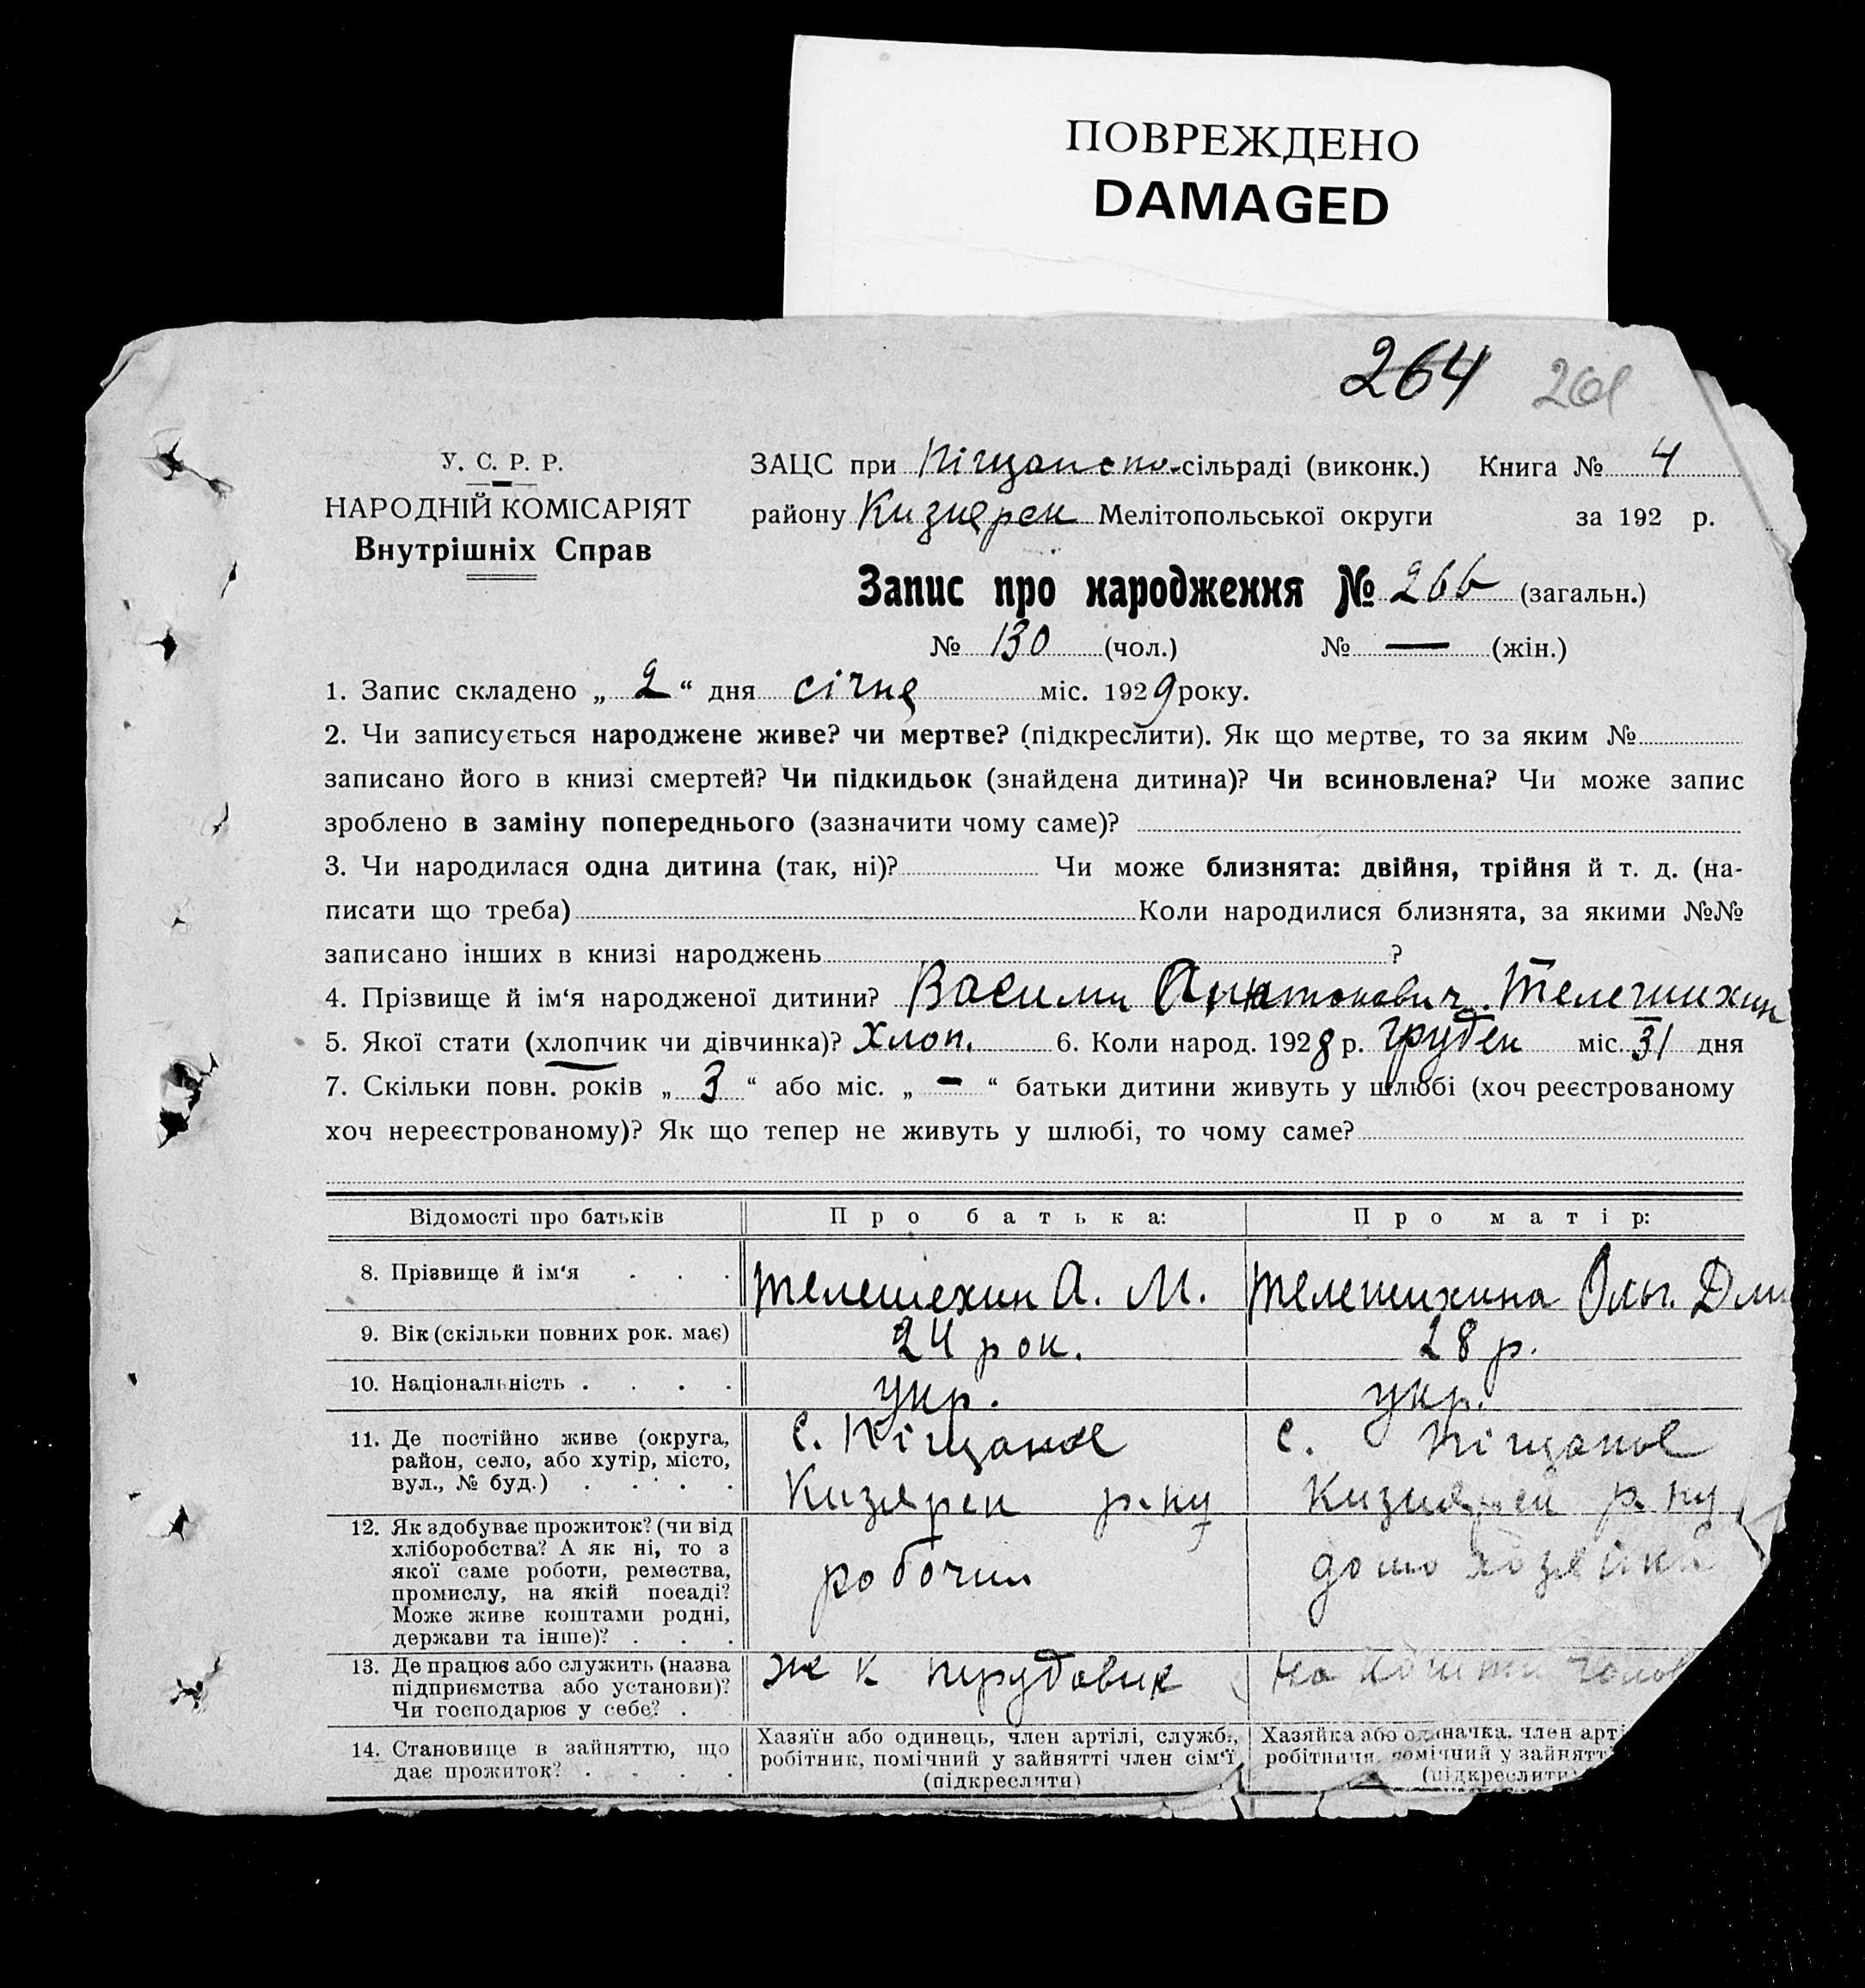 ПОВРЕЖДЕНО
DAMAGED
264 201
У. С. Р. Р.
НАРОДНІЙ КОМІСАРІЯТ
Внутрішніх Справ
ЗАЦС при Піщансько-сільраді (виконк.) Книга № 4
району Кизиярск Мелітопольської округи за 192 р.
Запис про народження № 266 (загальн.)
№ 130 (чол.) № — (жін.)
1. Запис складено „ 2 “ дня січня міс. 1929 року.
2. Чи записується народжене живе? чи мертве? (підкреслити). Як що мертве, то за яким №
записано його в книзі смертей? Чи підкидьок (знайдена дитина)? Чи всиновлена? Чи може запис
зроблено в заміну попереднього (зазначити чому саме)?
3. Чи народилася одна дитина (так, ні)? Чи може близнята: двійня, трійня й т. д. (на-
писати що треба) Коли народилися близнята, за якими №№
записано інших в книзі народжень ?
4. Прізвище й ім‘я народженої дитини? Василий Антонович Телешихин
5. Якої стати (хлопчик чи дівчинка)? Хлоп. 6. Коли народ. 1928 р. груден міс. 31 дня
7. Скільки повн. років „ 3 “ або міс. „ – “ батьки дитини живуть у шлюбі (хоч реєстрованому
хоч нереєстрованому)? Як що тепер не живуть у шлюбі, то чому саме?
Відомості про батьків Про батька: Про матір:
8. Прізвище й ім‘я . . . Телешехин А. М. Телешихина Ольг. Дми
9. Вік (скільки повних рок. має) 24 рок. 28 р.
10. Національність . . . . укр. укр.
11. Де постійно живе (округа, район, село, або хутір, місто, вул., № буд.) . . . .
с. Піщаное с. Піщаное
Кизярск р-ну Кизиярск р-ну
12. Як здобуває прожиток? (чи від хліборобства? А як ні, то з якої саме роботи, ремества, промислу, на якій посаді? Може живе коштами родні, держави та інше)? . . .
робочий домохозяйка
13. Де працює або служить (назва підприємства або установи)? Чи господарює у себе? .
ж к трудовик На
14. Становище в зайняттю, що дає прожиток? . . . .
Хазяїн або одинець, член артілі, служб., Хазяйка або одиначка, член арті
робітник, помічний у зайнятті член сім‘ї робітниця, помічний у зайнятт
(підкреслити) (підкреслити)